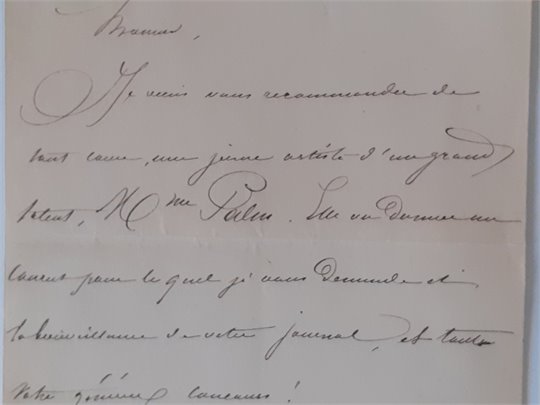 Monsieur,
Je viens vous recommander de
tout cœur, une jeune artiste d'un grand
talent, Mme Palm. Elle va donner un
concert pour lequel je vous demande et
la bienveillance de votre journal, et toute
votre généreux concours!